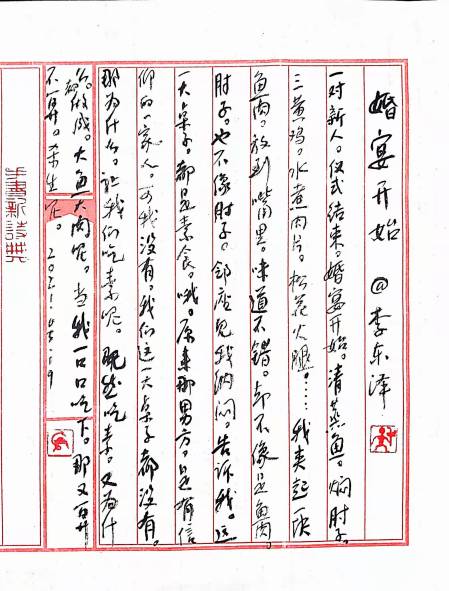 婚宴开始 @李东泽
一对新人。仪式结束。婚宴开始。清蒸鱼。焖肘子。
三黄鸡。水煮肉片。松花火腿。……我夹起一块
鱼肉。放到嘴里。味道不错。却不像是鱼肉。
肘子。也不像肘子。邻座见我纳闷。告诉我。这
一大桌子。都是素食。哦。原来那男方。是有信
仰的一家人。可我没有。我们这一大桌子都没有。
那为什么。让我们吃素呢。既然吃素。又为什
么。都做成。大鱼大肉呢。当我一口口吃下。那又算
不算。杀生呢。2021.05.19
手書新詩典